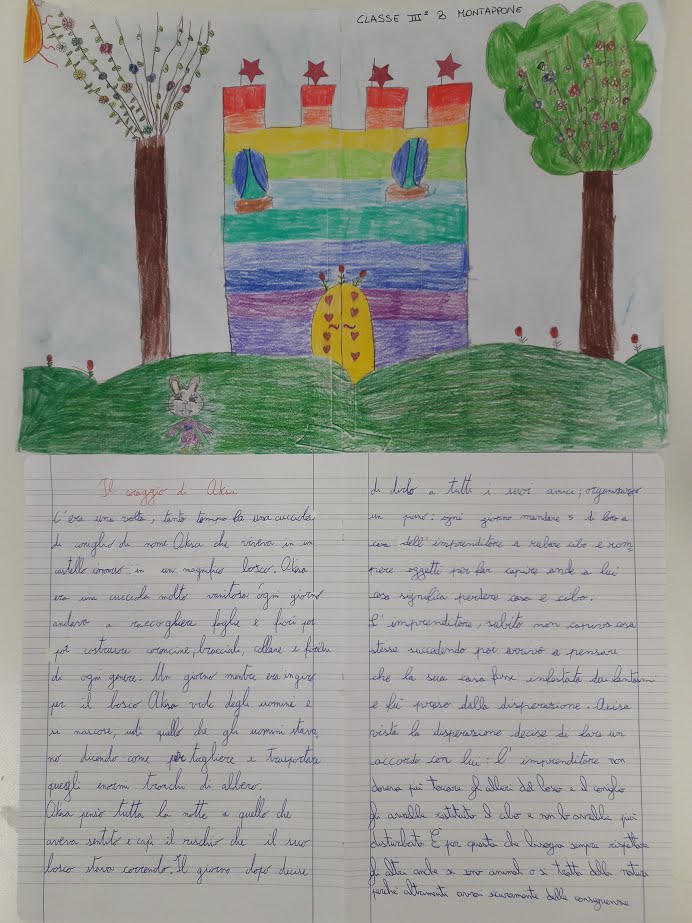 CLASSE IIIª B MONTAPPONE
Il coraggio di Akisa
C'era una volta, tanto tempo fa una cucciola
di coniglio di nome Akisa che viveva in un
castello in un magnifico bosco. Akisa
era una cucciola molto vanitosa ogni giorno
andava a raccogliere foglie e fiori per
poi costruire coroncine, bracciali, collane e
di ogni genere. Un giorno mentre era in giro
per il bosco Akisa vide degli uomini e
si nascose, udì quello che gli uomini stava
no dicendo come tagliere e trasportare
quegli enormi tronchi di albero.
Akisa pensò tutta la notte a quello che
aveva sentito e capì il rischio che il suo
bosco stava correndo. Il giorno dopo decise
di dirlo a tutti i suoi amici; organizzarono
un piano: ogni giorno mandare 5 di loro a
casa dell'imprenditore a rubare cibo e rom
pere oggetti per far capire anche a lui
cosa significa perdere casa e cibo.
L'imprenditore, subito non capiva cosa
stesse succedendo poi arrivò a pensare
che la sua casa fosse infestata dai fantasmi
e fù preso dalla disperazione. Akisa
vista la disperazione decise di fare un
accordo con lui: l'imprenditore non
doveva più toccare gli alberi del bosco e il coniglio
gli avrebbe restituito il cibo e non lo avrebbe più
disturbato. E per questo che bisogna sempre rispettare
gli altri anche se sono animali o si tratta della natura
perché altrimenti avrai sicuramente delle conseguenze